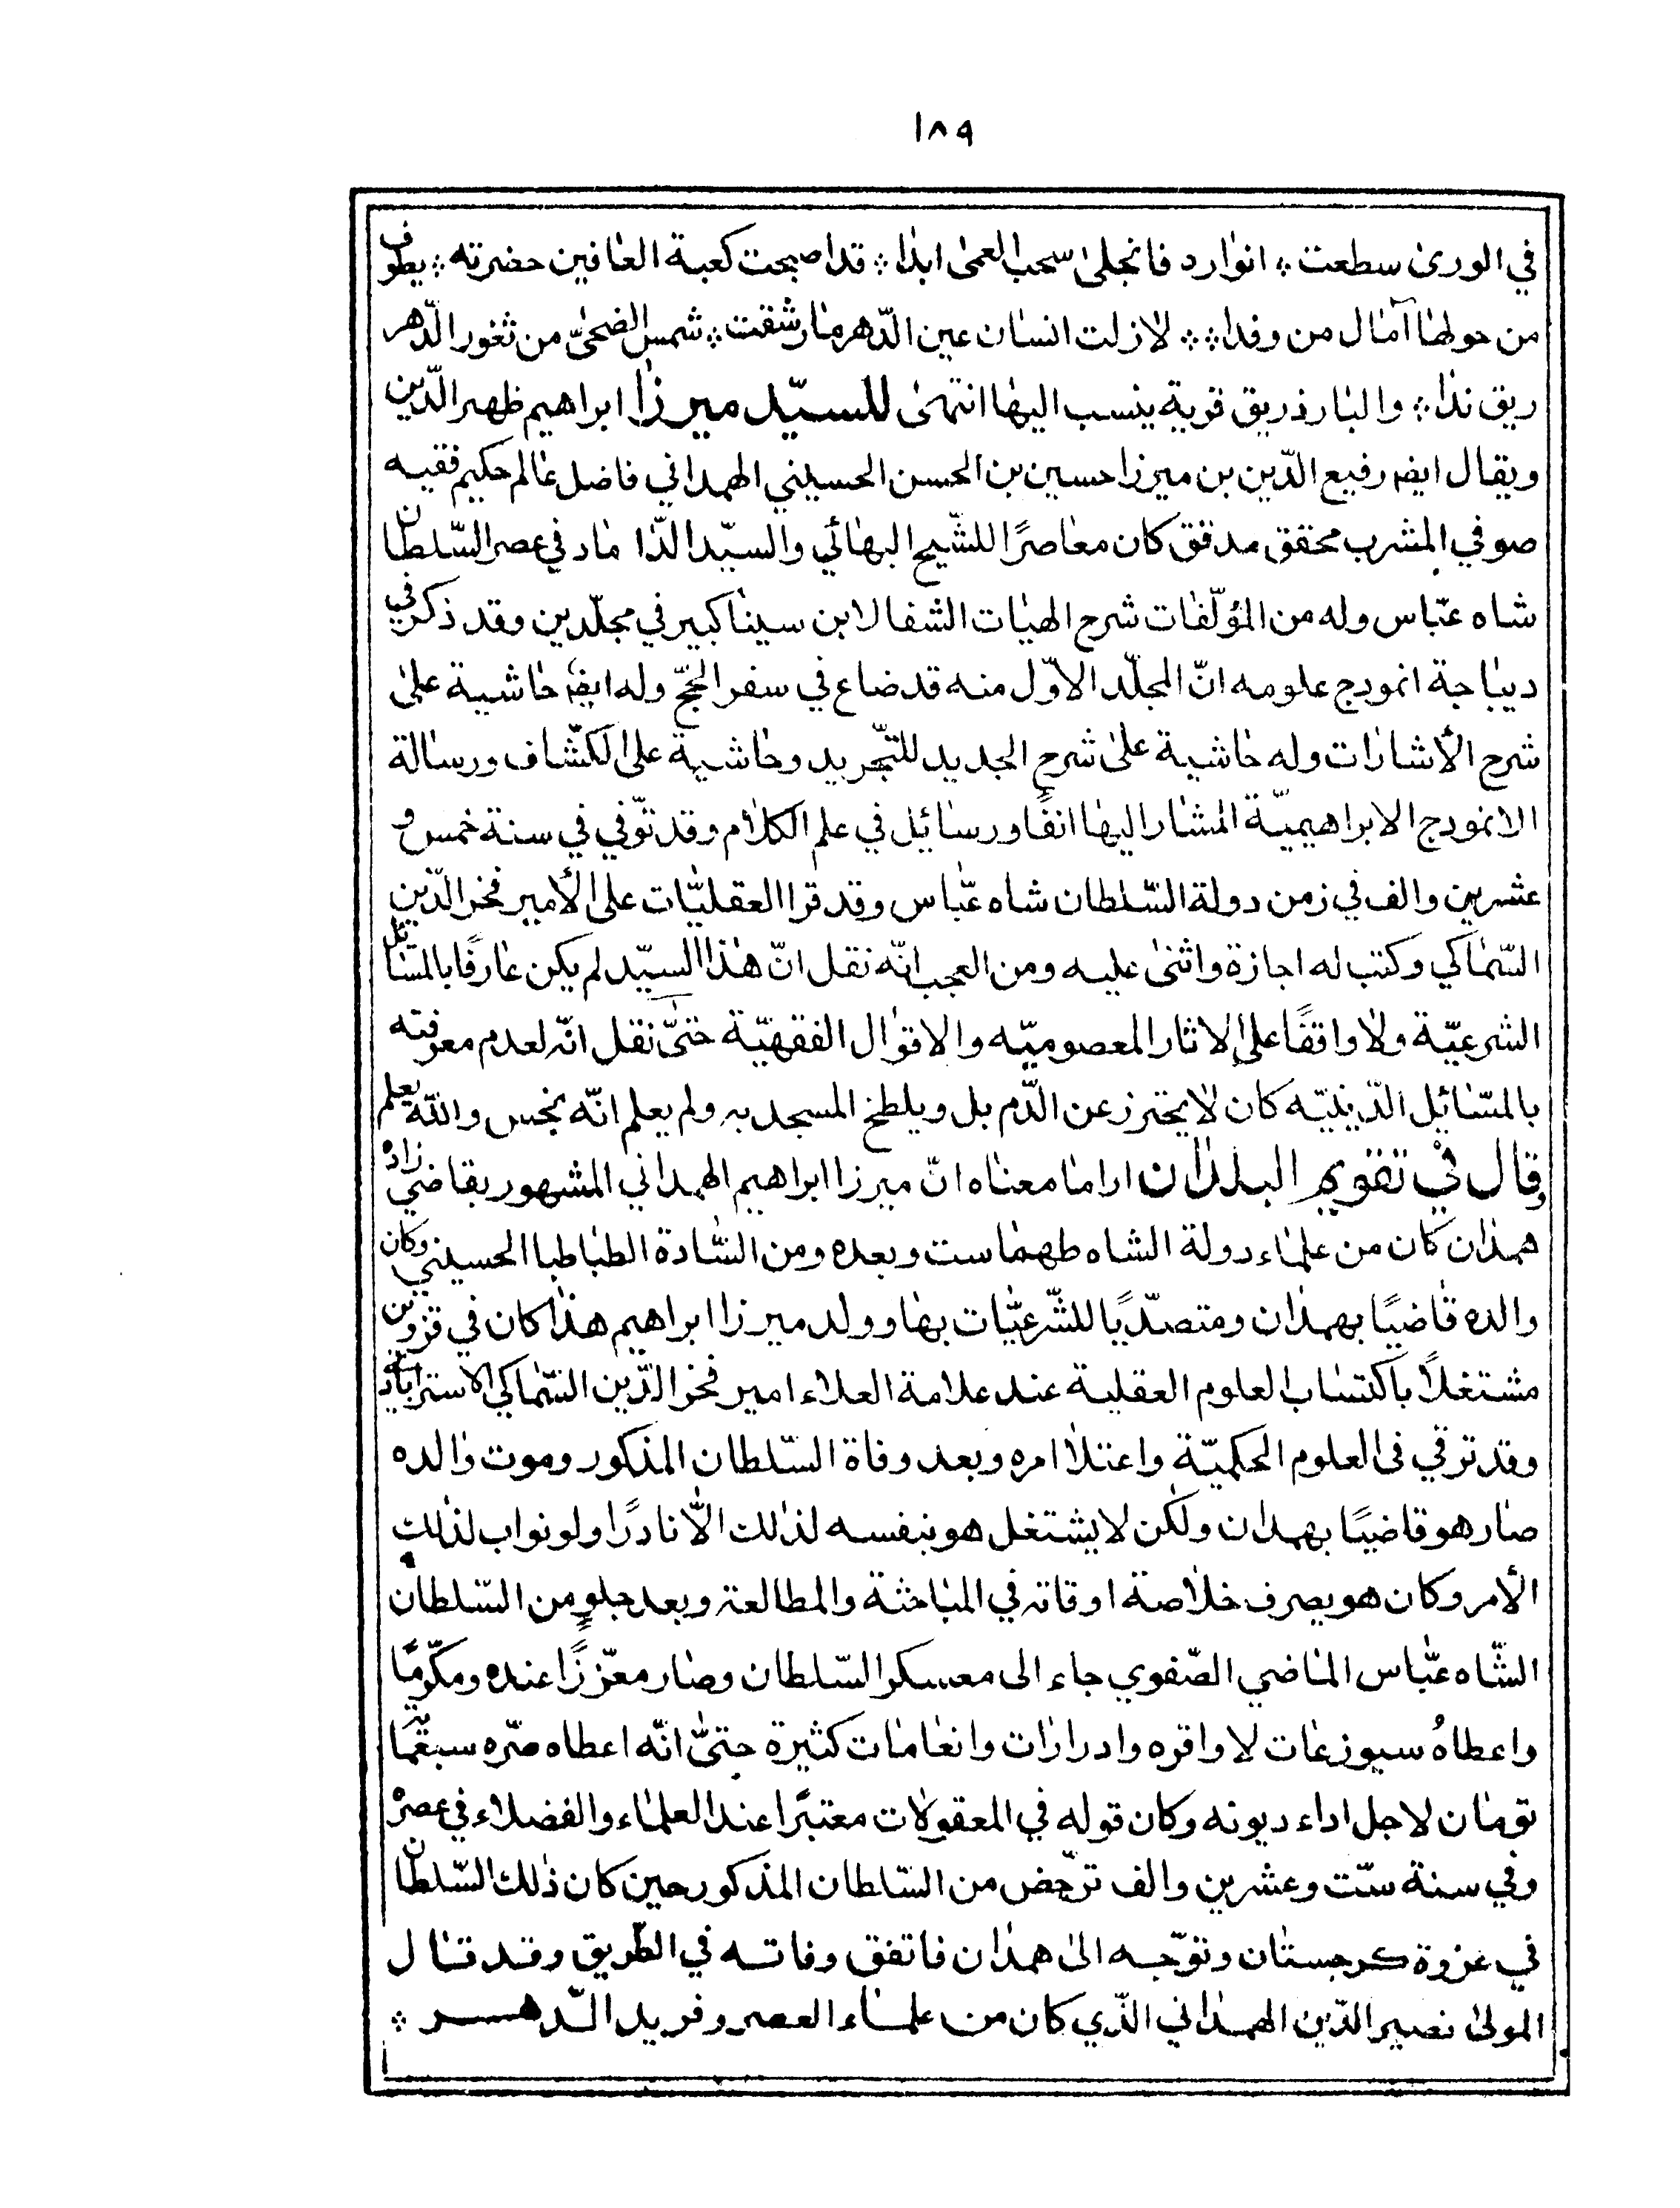 ١٨٩
في الورى سطعت ؞ انوار د فانجلى سحب العمى ابدا ؞ قد اصبحت كعبة العافين حضرته ؞ يطوف
من حولها آمال من وفدا ؞؞ لازلت انسان عين الدّهر ما رشقت ؞ شمس الضحىّ من ثغور الدّهر
ريق ندا ؞ والبارذريق قرية ينسب اليها انتهى للسيّد ميرزا ابراهيم ظهير الدّين
ويقال ايضه رفيع الدّين بن ميرزا حسين بن الحسن الحسيني الهمداني فاضل عالم حكيم فقيه
صوفي المشرب محقق مدقق كان معاصرًا للشّيخ البهائي والسيّد الدّاماد في عصر السّلطان
شاه عبّاس وله من المؤلّفات شرح الهيات الشفا لابن سينا كبير في مجلّدين وقد ذكر في
ديباجة انموذج علومه انّ المجلّد الاوّل منه قد ضاع في سفر الحجّ وله ايضه حاشية على
شرح الأشارات وله حاشية على شرح الجديد للتّجريد وحاشية على الكشّاف ورسالة
الانموذج الابراهيميّة المشار اليها انفًا ورسائيل في علم الكلام وقد توّفي في سنة خمس و
عشرين والف في زمن دولة السّلطان شاه عبّاس وقد قرا العقليّات على الأمير فخر الدّين
السّماكي وكتب له اجازة واثنى عليه ومن العجب انّه نقل انّ هذا السيّد لم يكن عارفًا بالمسائل
الشرعيّة ولا واقفًا على الاثار المعصوميّه والاقوال الفقهيّة حتىّ نقل انّه لعدم معرفته
بالمسّائيل الدّينيّه كان لا يحترز عن الدّم بل ويلطخ المسجد به ولم يعلم انّه نجس واللّه يعلم
وقال في تقويم البلدان ارا ما معناه انّ ميرزا ابراهيم الهمداني المشهور بقاضي زاده
همذان كان من علماء دولة الشاه طهماست وبعده ومن السّادة الطباطبا الحسيني وكان
والده قاضيًا بهمذان ومتصدّيًا للشّرعيّات بها وولد ميرزا ابراهيم هذا كان في قزوين
مشتغلاً باكتساب العلوم العقلية عند علامة العلاء امير فخر الدّين السّماكي الاسترابادي
وقد ترقي فى العلوم الحكميّة واعتلا امره وبعد وفاة السّلطان المذكور وموت والده
صار هو قاضيًا بهمدان ولكن لا يشتغل هو بنفسه لذلك الّا نادرًا ولو نواب لذلك
الأمر وكان هو يصرف خلاصة اوقاته في المباحثة والمطالعة وبعد جلوٍ من السّلطان
الشّاه عبّاس الماضي الصّفوي جاء الى معسكر السّلطان وصار معزّزًا عنده ومكرّمًا
واعطاهُ سيوزغات لا واقره وادرارات وانعامات كثيرة حتىّ انّه اعطاه مرّه سبعّمائة
تومان لاجل اداء ديونه وكان قوله في المعقولات معتبرًا عند العلماء والفضلاء في عصره
وفي سنة ستّ وعشرين والف ترخّص من السّلطان المذكور حين كان ذلك السّلطان
في غزوة كرجستان وتوّجه الى همدان فاتفق وفاته في الطّريق وقد قال
المولى نصير الدّين الهمذاني الذّي كان من علماء العصر وفريد الدّهر ؞